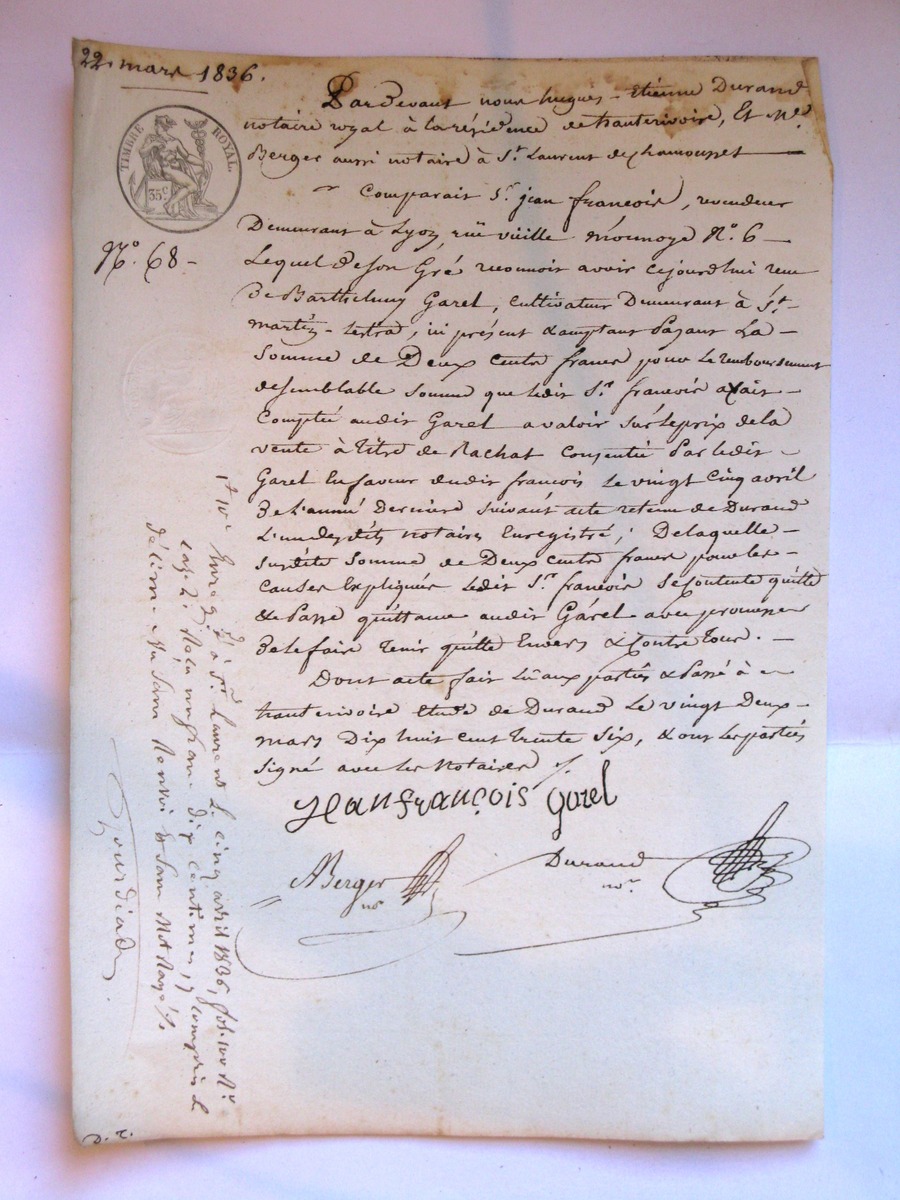 22. mars 1836.
TIMBRE ROYAL.
35 C
N.° 68 -
Pardevant nous hugues - Etienne Durand
notaire royal à la résidence de hauterivoire, Et Me.
Berger aussi notaire à St. Laurent de chamousset
Comparait Sr. jean françois, revendeur
Demeurant à Lyon, rüe vieille monnoye N.° 6
Lequel de son Gré reconnoit avoir cejourd'hui reçu
De Barthelemy Garel, cultivateur Demeurant à St.
martin - lestrat, ici présent & acceptant Payant La
Somme de Deux cents francs pour le remboursement
de semblable Somme que ledit Sr. françois avait
Comptée audit Garel a valoir sur le prix de la
vente à titre de Rachat Consentie Par ledit
Garel En faveur dudit françois Le vingt Cinq avril
De l'année Derniere suivant acte retenu de Durand
L'un desdits notaires Enregistré ; De laquelle
susdite Somme de Deux cents francs pour les
causes Expliquées ledit Sr. françois se contente quitte
& Passe quittance audit Garel avec promesse
De le faire tenir quitte Envers & Contre tous.
Dont acte fait lû aux parties & Passé à
hauterivoire étude de Durand Le vingt Deux
mars Dix huit cent trente six, & ont les parties
Signé avec les Notaires
Jean françois Garel
Berger
nre
Durand
nre.
Enreg. à St. Laurent le cinq avril 1836, fol. 100 Ro
Reçu un franc dix centimes, y compris le
décime.
Gourdiat
D. T.